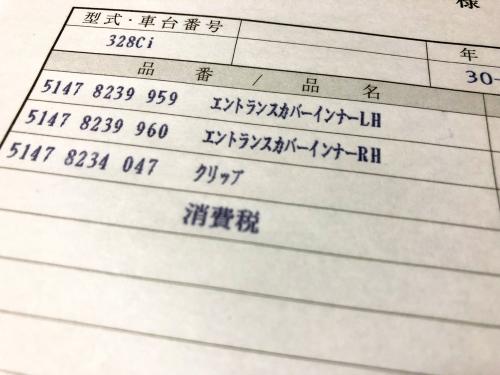 様
型式・車台番号
328Ci
年
30-
品 番 / 品 名
5147 8239 959 エントランスカバーインナーLH
5147 8239 960 エントランスカバーインナーRH
5147 8234 047 クリップ
消費税